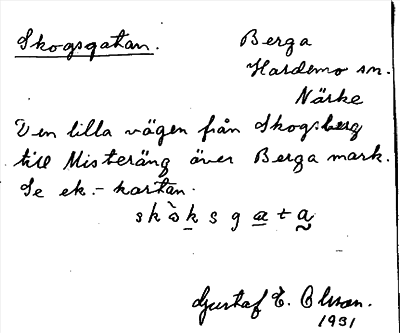 Skogsgatan.
Berga
Hardemo sn.
Närke
Den lilla vägen från Skogsberg
till Misteräng över Berga mark.
Se ek.-kartan.
skòk̲sga̲ta̰
Gustaf E. Olsson.
1931